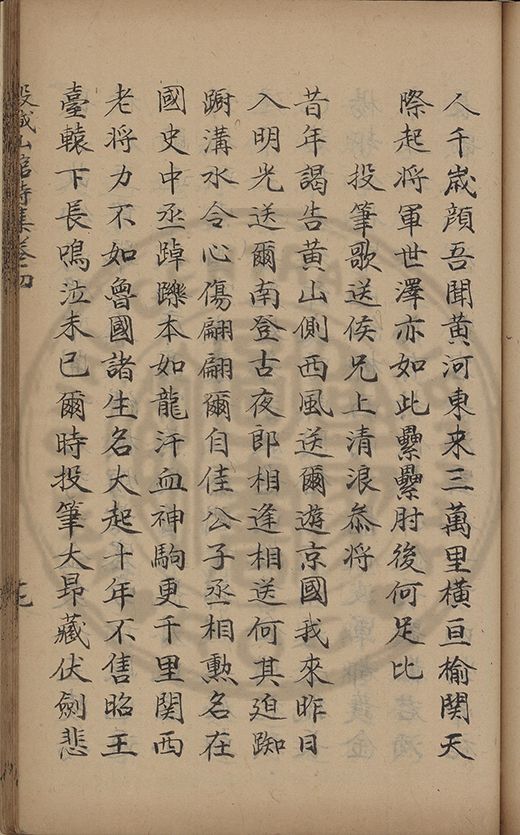 人千歲顏吾聞黃河東来三萬里橫亘榆関天
際起將軍世澤亦如此纍纍肘後何足比
投筆歌送侯兄上清浪叅將
昔年謁告黃山側西風送爾遊京國我来昨日
入明光送爾南登古夜郎相逢相送何其廹踟
蹰溝水令心傷翩翩爾自佳公子丞相勲名在
國史中丞踔躒本如龍汗血神駒更千里関西
老將力不如魯國諸生名大起十年不售昭王
臺轅下長鳴泣未已爾時投筆大昴藏伏劍悲
穀城山館詩集卷四